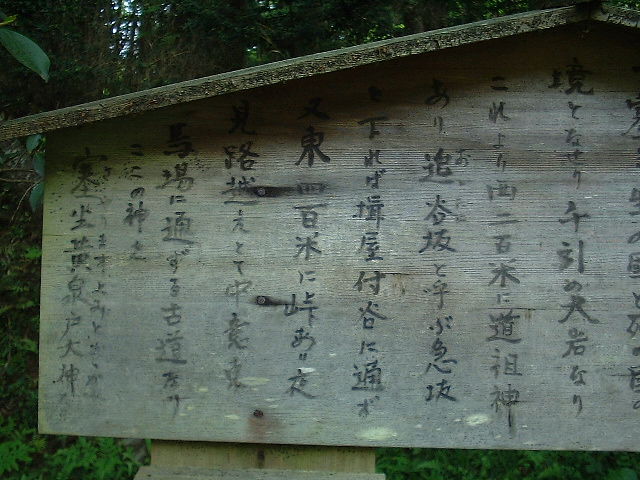 生の国と死の国の
境となせり千引の大岩なり
これより西二百米に道祖神
あり追谷坂と呼ぶ急坂
を下れば揖屋付谷に通ず
又東四百米に峠あり夜
見路越えとて中意東
馬場に通ずる古道なり
ここの神を
塞坐黄泉戸大神